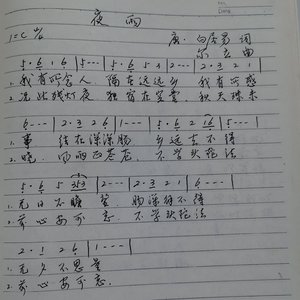 夜雨
1=C 4/4
唐·白居易 词
曲
5·6 1 6 | 5 - - - | 5·6 5 3 | 2 - - - | 2·3 2 1 |
1. 我有所念人 隔在远远乡 我有所感
2. 况此残灯夜 独宿在空堂 秋天殊未
6 - - - | 2·3 2 6 | 1 - - - | 5·6 2 16 | 5 - - - |
1. 事 结在深深肠 乡远去不得
2. 晓 风雨正苍苍 不学头陀法
5·6 5 353 | 2 - - - | 2·3 2 1 | 6 - - - |
1. 无日不瞻望 肠深解不得
2. 前心安可忘 不学头陀法
2·1 2 6 | 1 - - - |
1. 无夕不思量
2. 前心安可忘